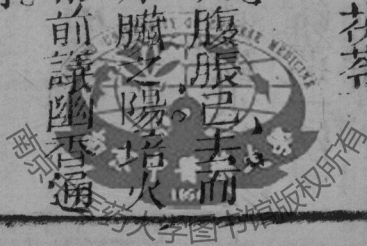 茯苓
腹脹已去而
臟之陽培火
前議幽香通
南京中医药大学图书馆版权所有